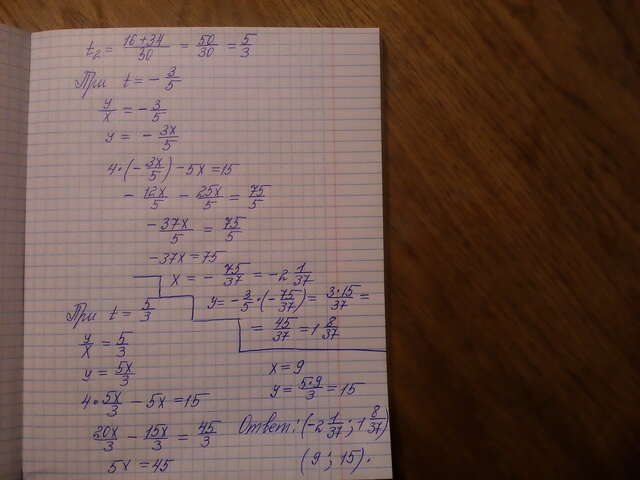 t₂ = (16+34)/30 = 50/30 = 5/3
При t = -3/5
y/x = -3/5
y = -3x/5
4·(-3x/5) - 5x = 15
-12x/5 - 25x/5 = 75/5
-37x/5 = 75/5
-37x = 75
x = -75/37 = -2 1/37
y = -3/5·(-75/37) = 3·15/37 =
= 45/37 = 1 8/37
При t = 5/3
y/x = 5/3
y = 5x/3
4·5x/3 - 5x = 15
20x/3 - 15x/3 = 45/3
5x = 45
x = 9
y = 5·9/3 = 15
Ответ: (-2 1/37; 1 8/37)
(9; 15).